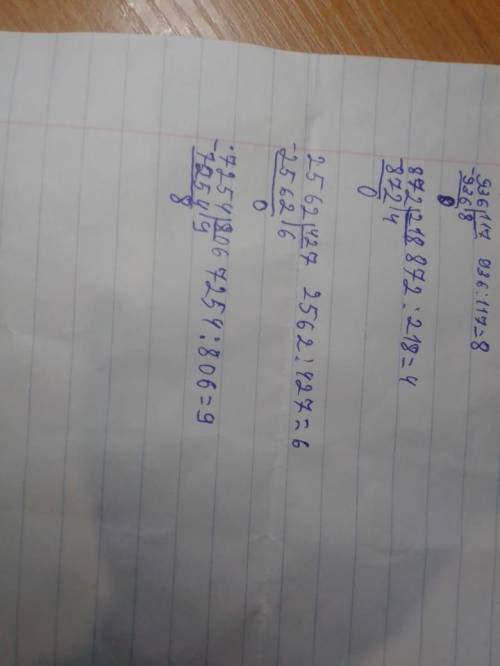 -936|117 936:117=8
936|8
0
872|218 872:218=4
-872|4
0
2562|427 2562:427=6
-2562|6
0
-7254|806 7254:806=9
7254|9